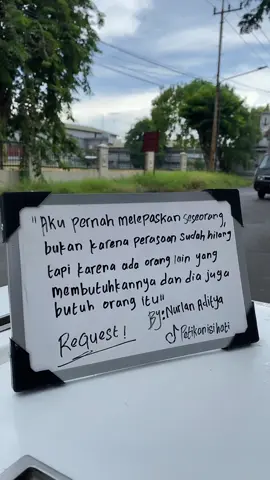 "Aku pernah melepaskan seseorang,
bukan karena perasaan sudah hilang
tapi karena ada orang lain yang
membutuhkannya dan dia juga
butuh orang itu"
By: Nurlan Aditya
ReQuest!
Petikanisihati